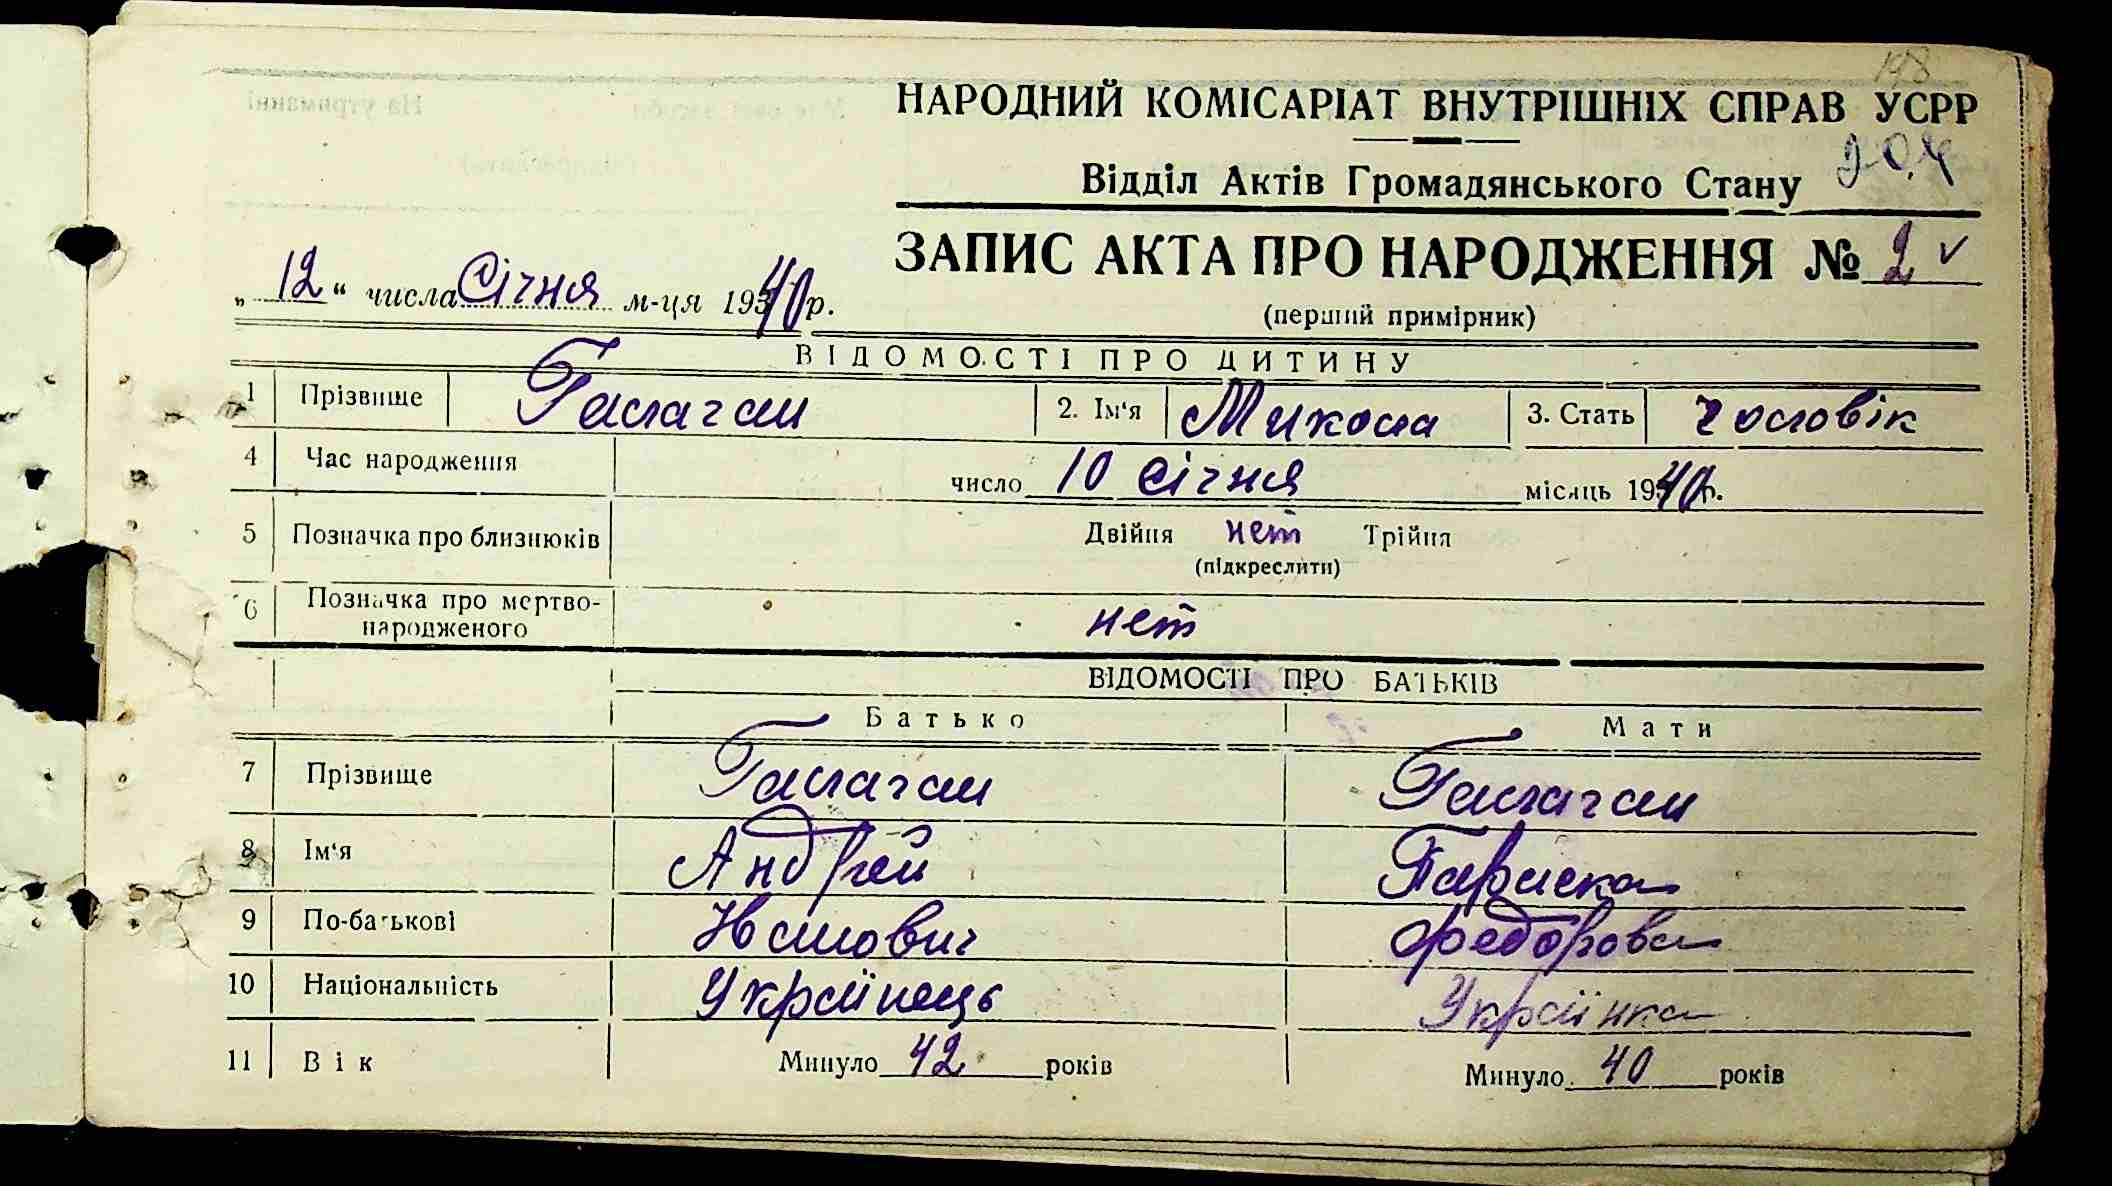 198
НАРОДНИЙ КОМІСАРІАТ ВНУТРІШНІХ СПРАВ УСРР
Відділ Актів Громадянського Стану
ЗАПИС АКТА ПРО НАРОДЖЕННЯ № 2
„ 12 “ числа Січня м-ця 1940 р.
(перший примірник)
ВІДОМОСТІ ПРО ДИТИНУ
1 Прізвище Галаган 2. Ім‘я Микола 3. Стать чоловік
4 Час народження число 10 Січня місяць 1940 р.
5 Позначка про близнюків Двійня нет Трійня
(підкреслити)
6 Позначка про мертво-
народженого нет
ВІДОМОСТІ ПРО БАТЬКІВ
Батько Мати
7 Прізвище Галаган Галаган
8 Ім‘я Андрей Параска
9 По-батькові Федорова
10 Національність Українець Українка
11 Вік Минуло 42 років Минуло 40 років